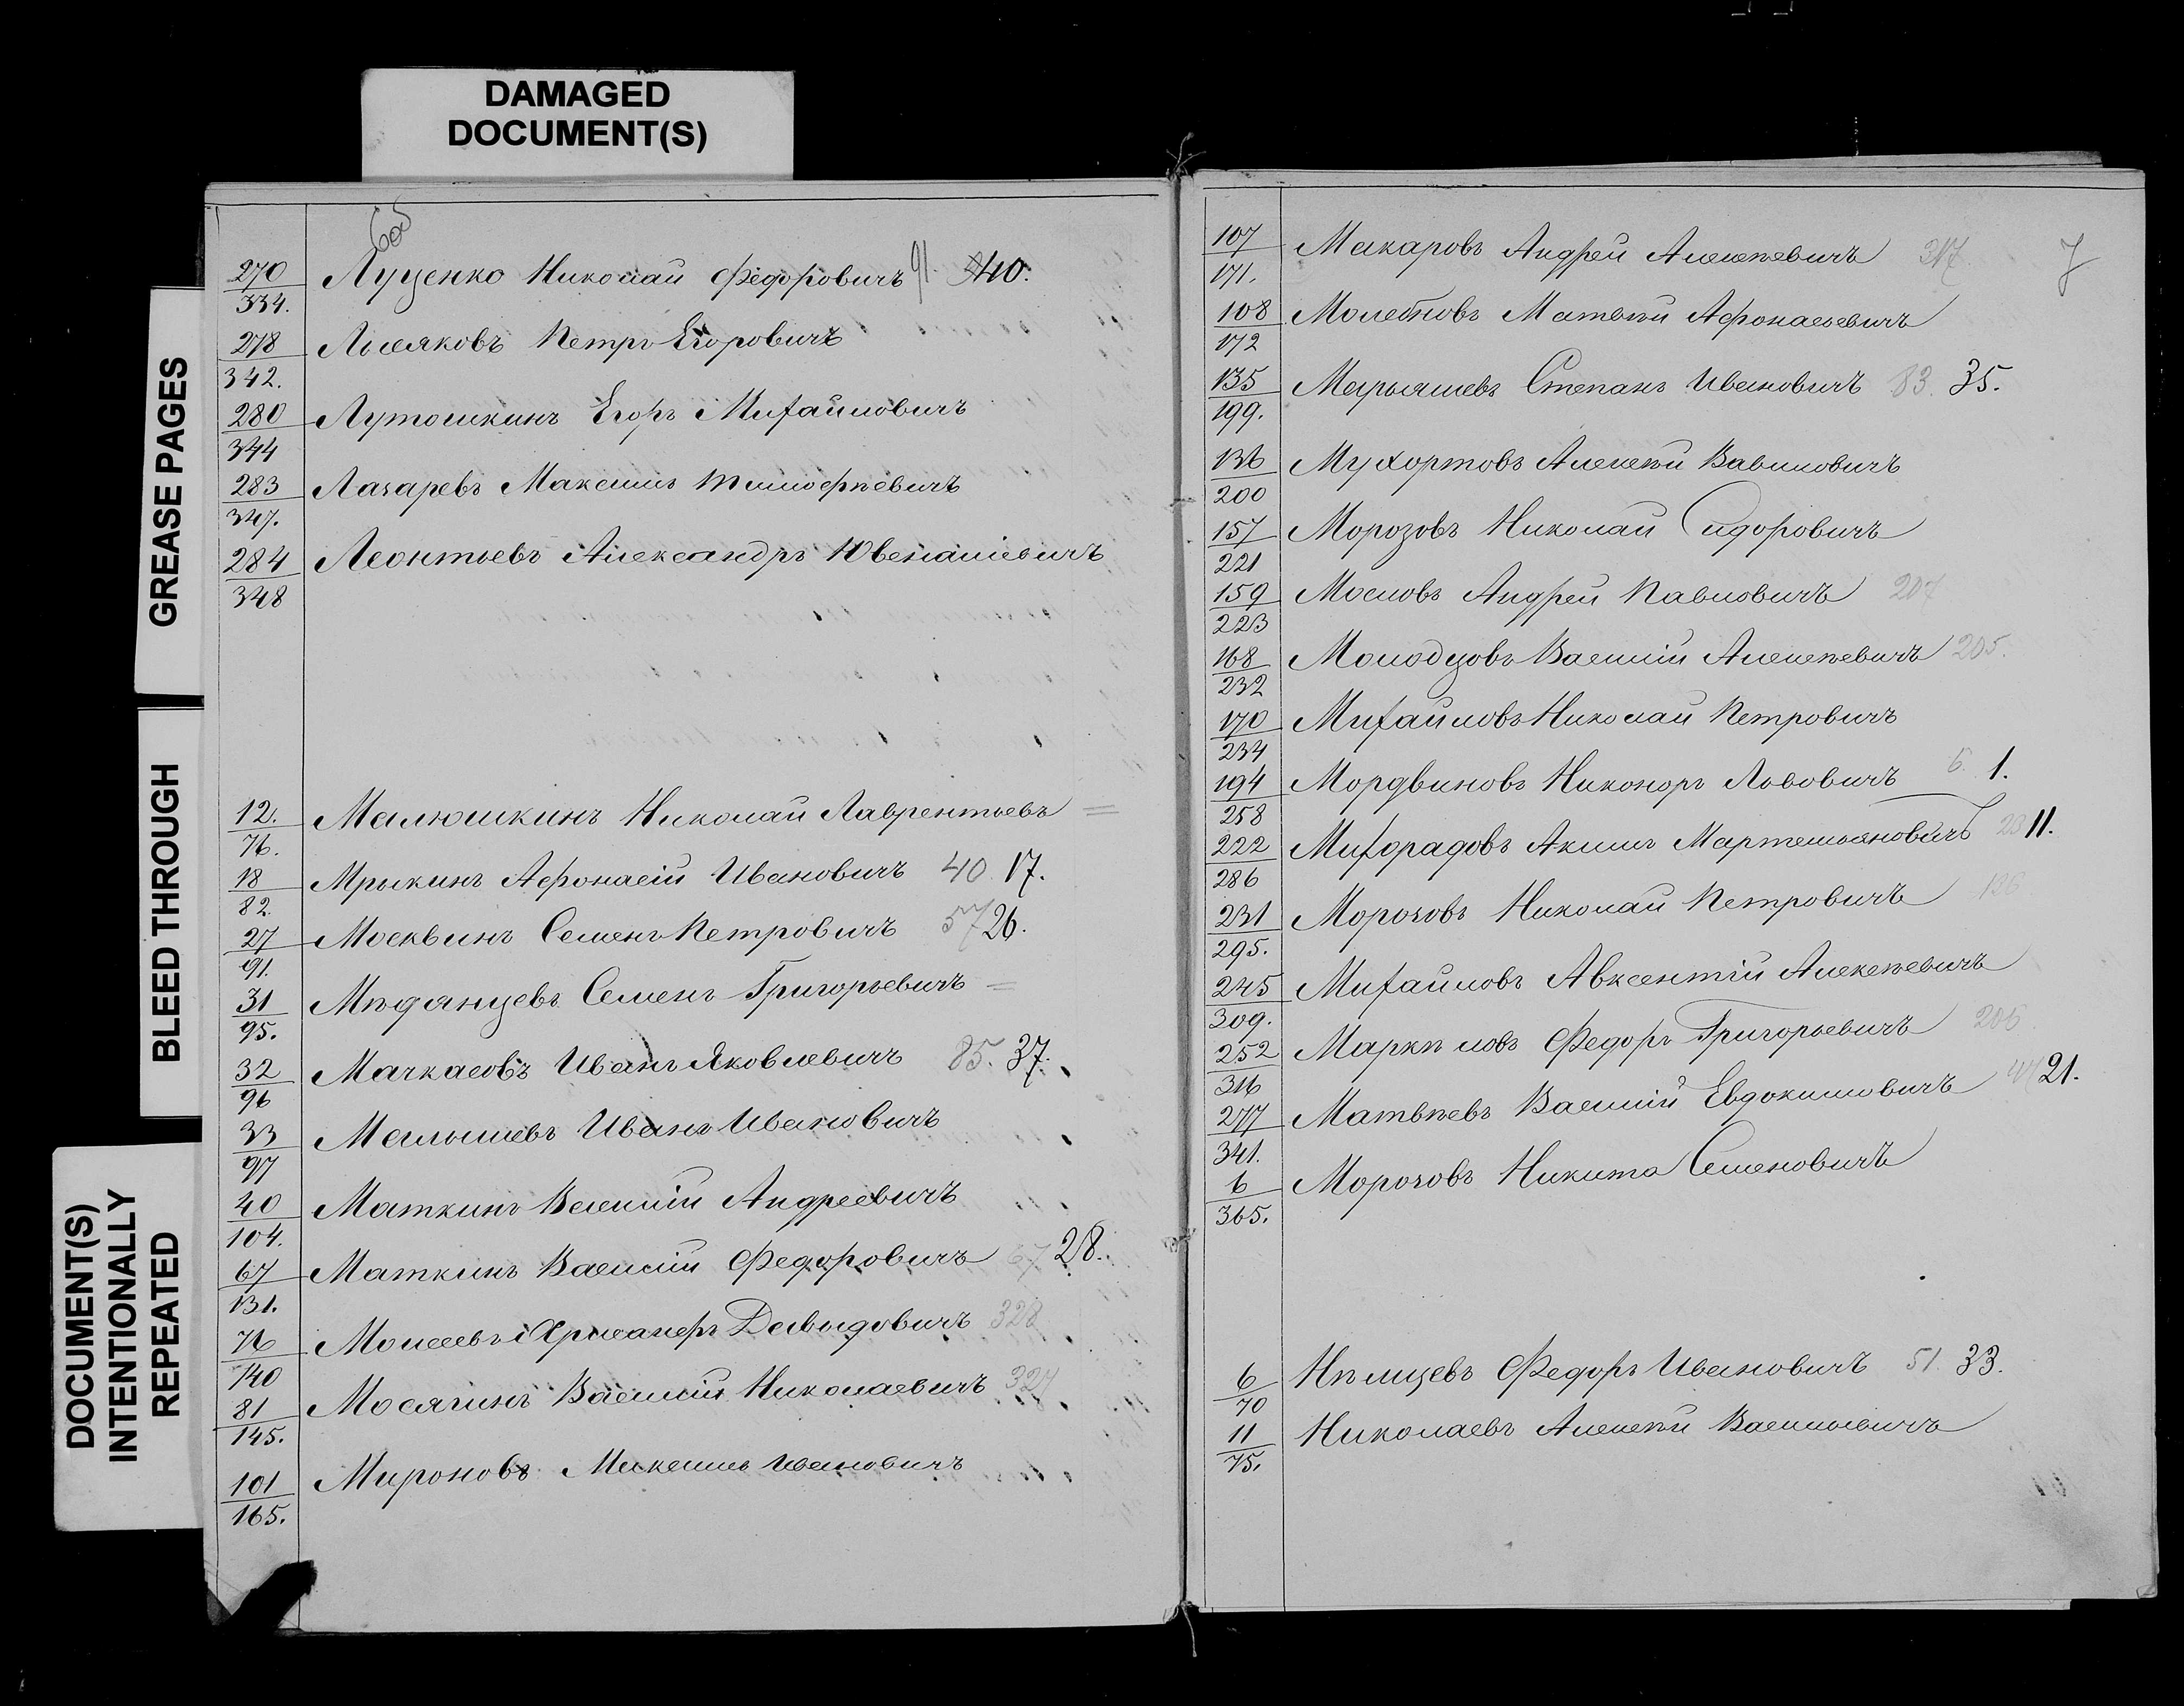 DAMAGED
DOCUMENT(S)
GREASE PAGES
BLEED THROUGH
DOCUMENT(S)
INTENTIONALLY
REPEATED
6об
270/334. Луценко Николай Федоровичъ 91. 40.
278/342. Лысяковъ Петръ Егоровичъ
280/344 Лутошкинъ Егоръ Михайловичъ
283/347. Лазаревъ Максимъ Тимофѣевичъ
284/348 Леонтьевъ Александръ Ювеналіевичъ
12./76. Малюшкинъ Николай Лаврентьевъ =
18/82. Мрыкинъ Афонасій Ивановичъ 40. 17.
27/91. Москвинъ Семенъ Петровичъ 57 26.
31/95. Мѣдянцевъ Семенъ Григорьевичъ =
32/96 Мачкасовъ Иванъ Яковлевичъ 85. 37.
33/97 Малышевъ Иванъ Ивановичъ
40/104. Маткинъ Василій Андреевичъ
67/131. Маткинъ Василій Федоровичъ 67 28.
76/140 Моисеевъ Хрисанфъ Давыдовичъ 328
81/145. Мосягинъ Василій Николаевичъ 327
101/165. Мироновъ Максимъ Ивановичъ
7
107/171. Макаровъ Андрей Алексѣевичъ 317
108/172 Молебновъ Матвѣй Афонасьевичъ
135/199. Марышевъ Степанъ Ивановичъ 83. 35.
136/200 Мухортовъ Алексѣй Вавиловичъ
157/221 Морозовъ Николай Сидоровичъ
159/223 Масловъ Андрей Павловичъ 207
168/232 Молодцовъ Василій Алексѣевичъ 205.
170/234 Михайловъ Николай Петровичъ
194/258 Мордвиновъ Никоноръ Львовичъ 5. 1.
222/286 Михорадовъ Акимъ Мартемьяновичъ 23 11.
231/295. Морозовъ Николай Петровичъ 136
245/309. Михайловъ Авксентій Алексѣевичъ
252/316 Маркѣловъ Федоръ Григорьевичъ 206
277/341. Матвѣевъ Василій Евдокимовичъ 47 21.
6/365. Морозовъ Никита Семеновичъ
6/70 Нѣмцевъ Федоръ Ивановичъ 51. 33.
11/75. Николаевъ Алексѣй Васильевичъ